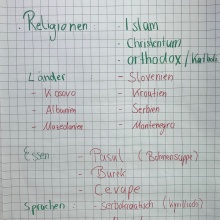 Religionen: - Islam
- Christentum
- orthodox / Katholi
Länder - Slovenien
- Kosovo - Kroatien
- Albanien - Serbien
- Mazedonien - Montenegro
Essen - Pasul (Bohnensuppe)
- Burek
- Cevape
Sprachen: - serbokroatisch (kyrillisch)